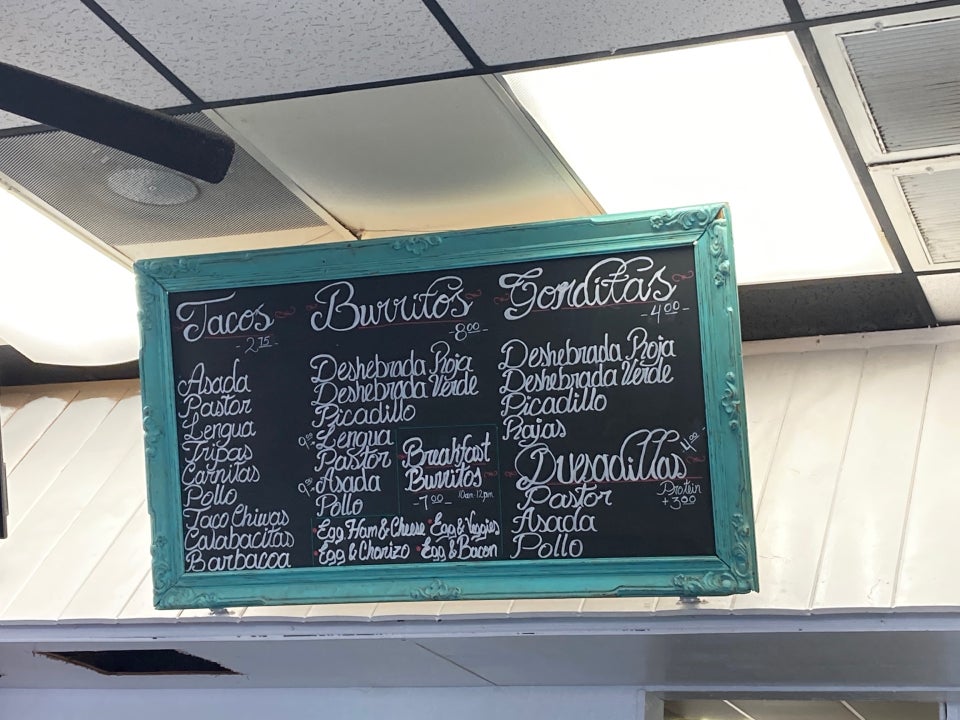 Tacos
-2.75-
Asada
Pastor
Lengua
Tripas
Carnitas
Pollo
Taco Chiwas
Calabacitas
Barbacoa
Burritos
-8.00-
Deshebrada Roja
Deshebrada Verde
Picadillo
9.00 Lengua
Pastor
9.00 Asada
Pollo
Breakfast
Burritos
-7.00- 10am-12pm
Egg, Ham & Cheese • Egg & Veggies
• Egg & Chorizo • Egg & Bacon
Gorditas
-4.00-
Deshebrada Roja
Deshebrada Verde
Picadillo
Rajas
Quesadillas
Protein
+3.00
Pastor
Asada
Pollo